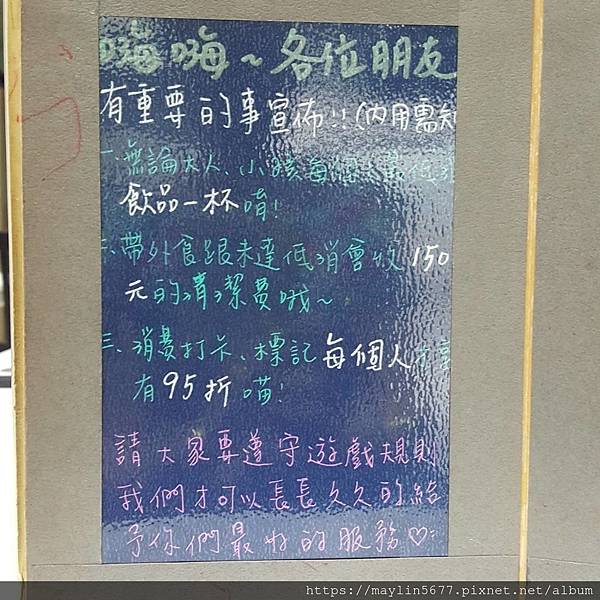 嗨嗨~各位朋友
有重要的事宣佈!!(內用需知
一、無論大人、小孩每個人最低消
飲品一杯唷!
二、帶外食跟未達低消會收150
元的清潔費哦~
三、消費打卡、標記每個人才享
有95折喵!
請大家要遵守遊戲規則
我們才可以長長久久的給
予你們最好的服務♡
https://maylin5677.pixnet.net/album